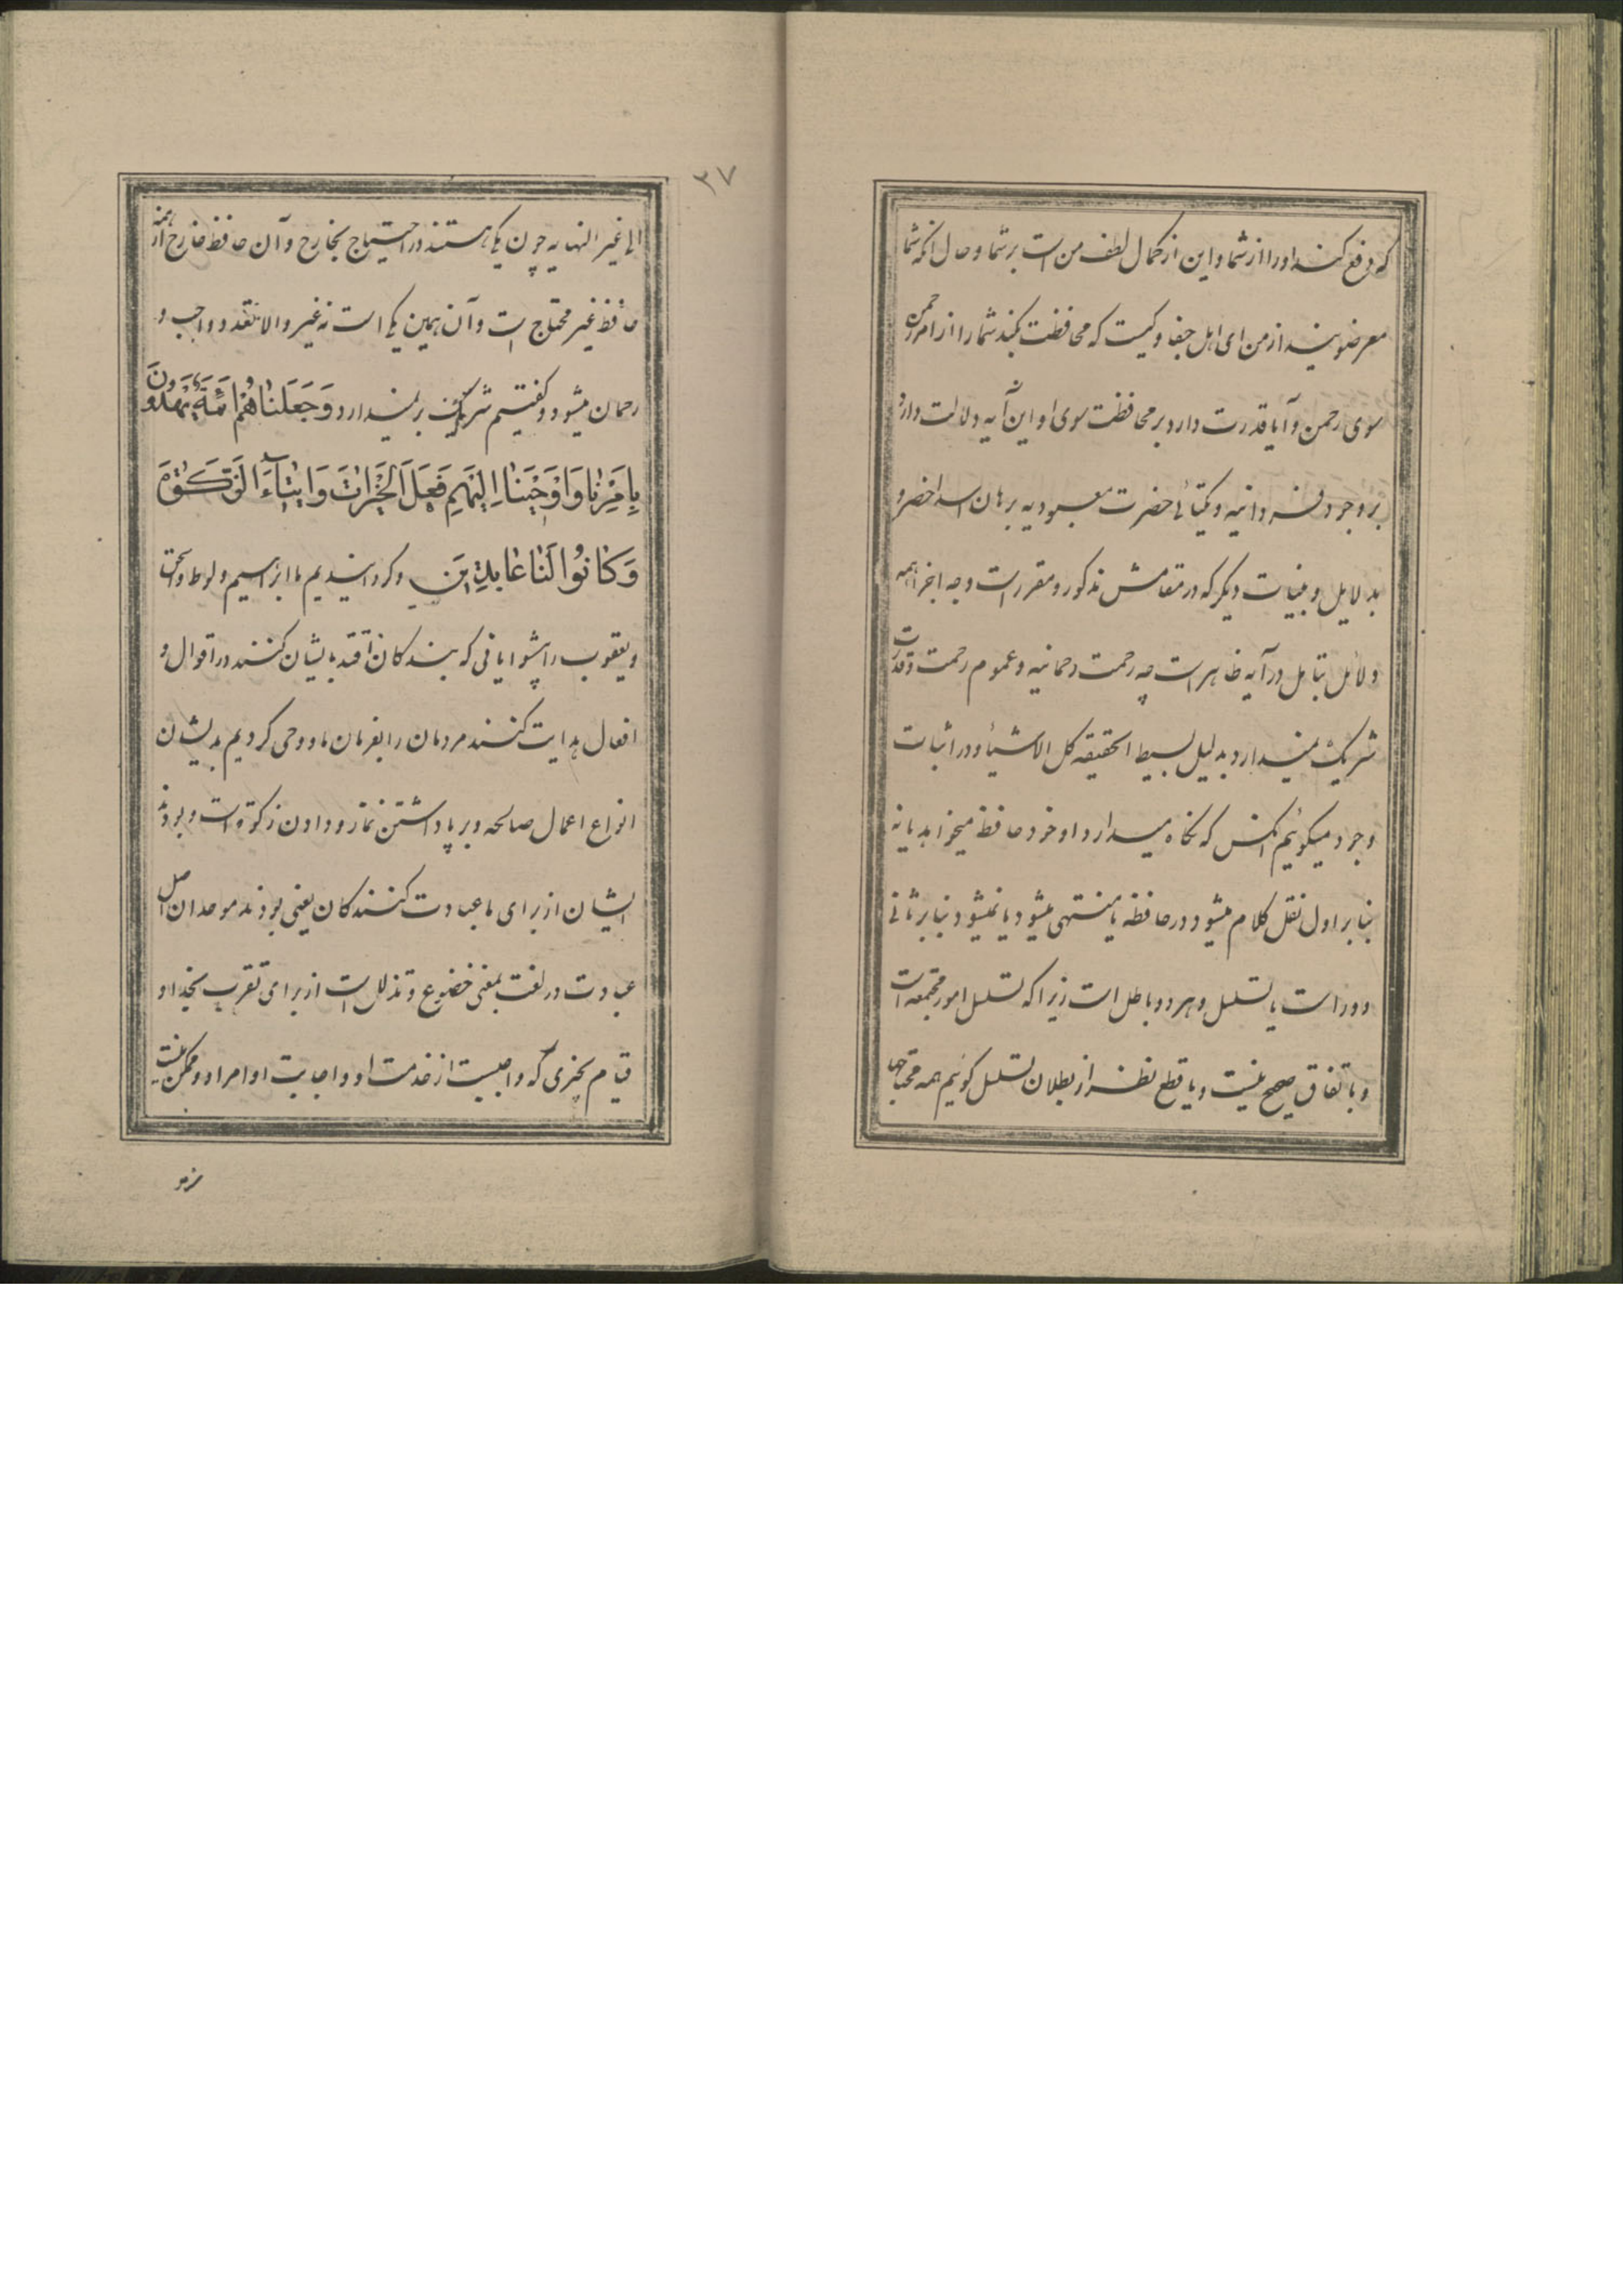 که دفع کند او را از شما و این از کمال لطف من است بر شما و حال آنکه شما
معرضوینید از من ای اهل جفا و کیست که محافظت بکند شما را از امر رحمن
سوی رحمن و آیا قدرت دارد بر محافظت سوی او و این آیه دلالت دارد
بر وجود فردانیه و یکتائی حضرت معبودیه برهان اسد اخضر و
بدلایل و بینات دیگر که در مقامش مذکور و مقرر است و جه
دلائل بتامل در آیه ظاهر است چه رحمت رحمانیه و عموم رحمت و قدرت
شریک نمیدارد بدلیل بسیط الحقیقه کل الاشیاء و در اثبات
وجود میگوئیم آنکس که نگاه میدارد او خود حافظ میخواهد یا نه
بنا بر اول نقل کلام میشود در حافظه یا منتهی میشود یا نمیشود بنا بر ثانی
دور است یا تسلسل و هر دو باطل است زیرا که تسلسل امور مجتمعه است
و باتفاق صحیح نیست و با قطع نظر از بطلان تسلسل گوئیم همه محتاجها
۳۷
الی غیر النهایه چون یکی هستند در احتیاج بخارج و آن حافظ خارج از همه
حافظ غیر محتاج است و آن همین یکی است نه غیر و الا تعدد واجب و
رحمان میشود و گفتیم شریک بر نمیدارد وَجَعَلْنَاهُمْ أَئِمَّةً يَهْدُونَ
بِأَمْرِنَا وَأَوْحَيْنَا إِلَيْهِمْ فِعْلَ الْخَيْرَاتِ وَإِيتَاءَ الزَّكَوٰةِ
وَكَانُوا لَنَا عَابِدِينَ و گردانیدیم ما ابراهیم و لوط و اسحق
و یعقوب را پیشوایانی که بندگان اقتدا بایشان کنند در اقوال و
افعال هدایت کنند مردمان را بفرمان ما و وحی کردیم بدیشان
انواع اعمال صالحه و بر پا داشتن نماز و دادن زکوة است و بودند
ایشان از برای ما عبادت کنندگان یعنی بودند موحدان اصل
عبادت در لغت بمعنی خضوع و تذلل است از برای تقرب بخدا و
قیام بچیزی که واجبست از خدمت او و اجابت اوامر او و ممکن نیست